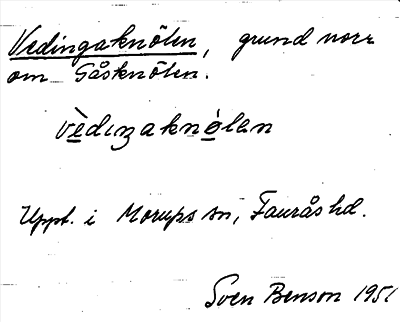 Vedingaknölen, grund norr
om Gåsknölen.
vèdiŋaknölan
Uppt. i Morups sn, Faurås hd.
Sven Benson 1951